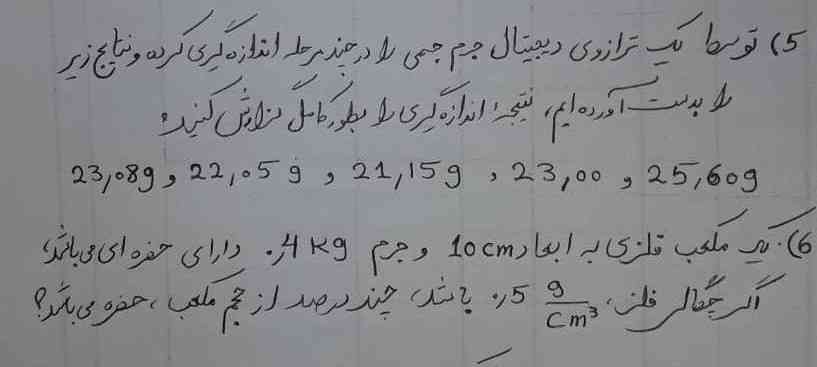 5) توسط یک ترازوی دیجیتال جرم جسمی را در چند مرحله اندازه‌گیری کرده و نتایج زیر
را بدست آورده‌ایم، نتیجهٔ اندازه‌گیری را بطور کامل گزارش کنید:
23,08g و 22,05g و 21,15g و 23,00 و 25,60g
6) یک مکعب فلزی به ابعاد 10cm و جرم 0,4 kg دارای حفره‌ای می‌باشد،
اگر چگالی فلز، 0,5 g/cm³ باشد، چند درصد از حجم مکعب، حفره می‌باشد؟